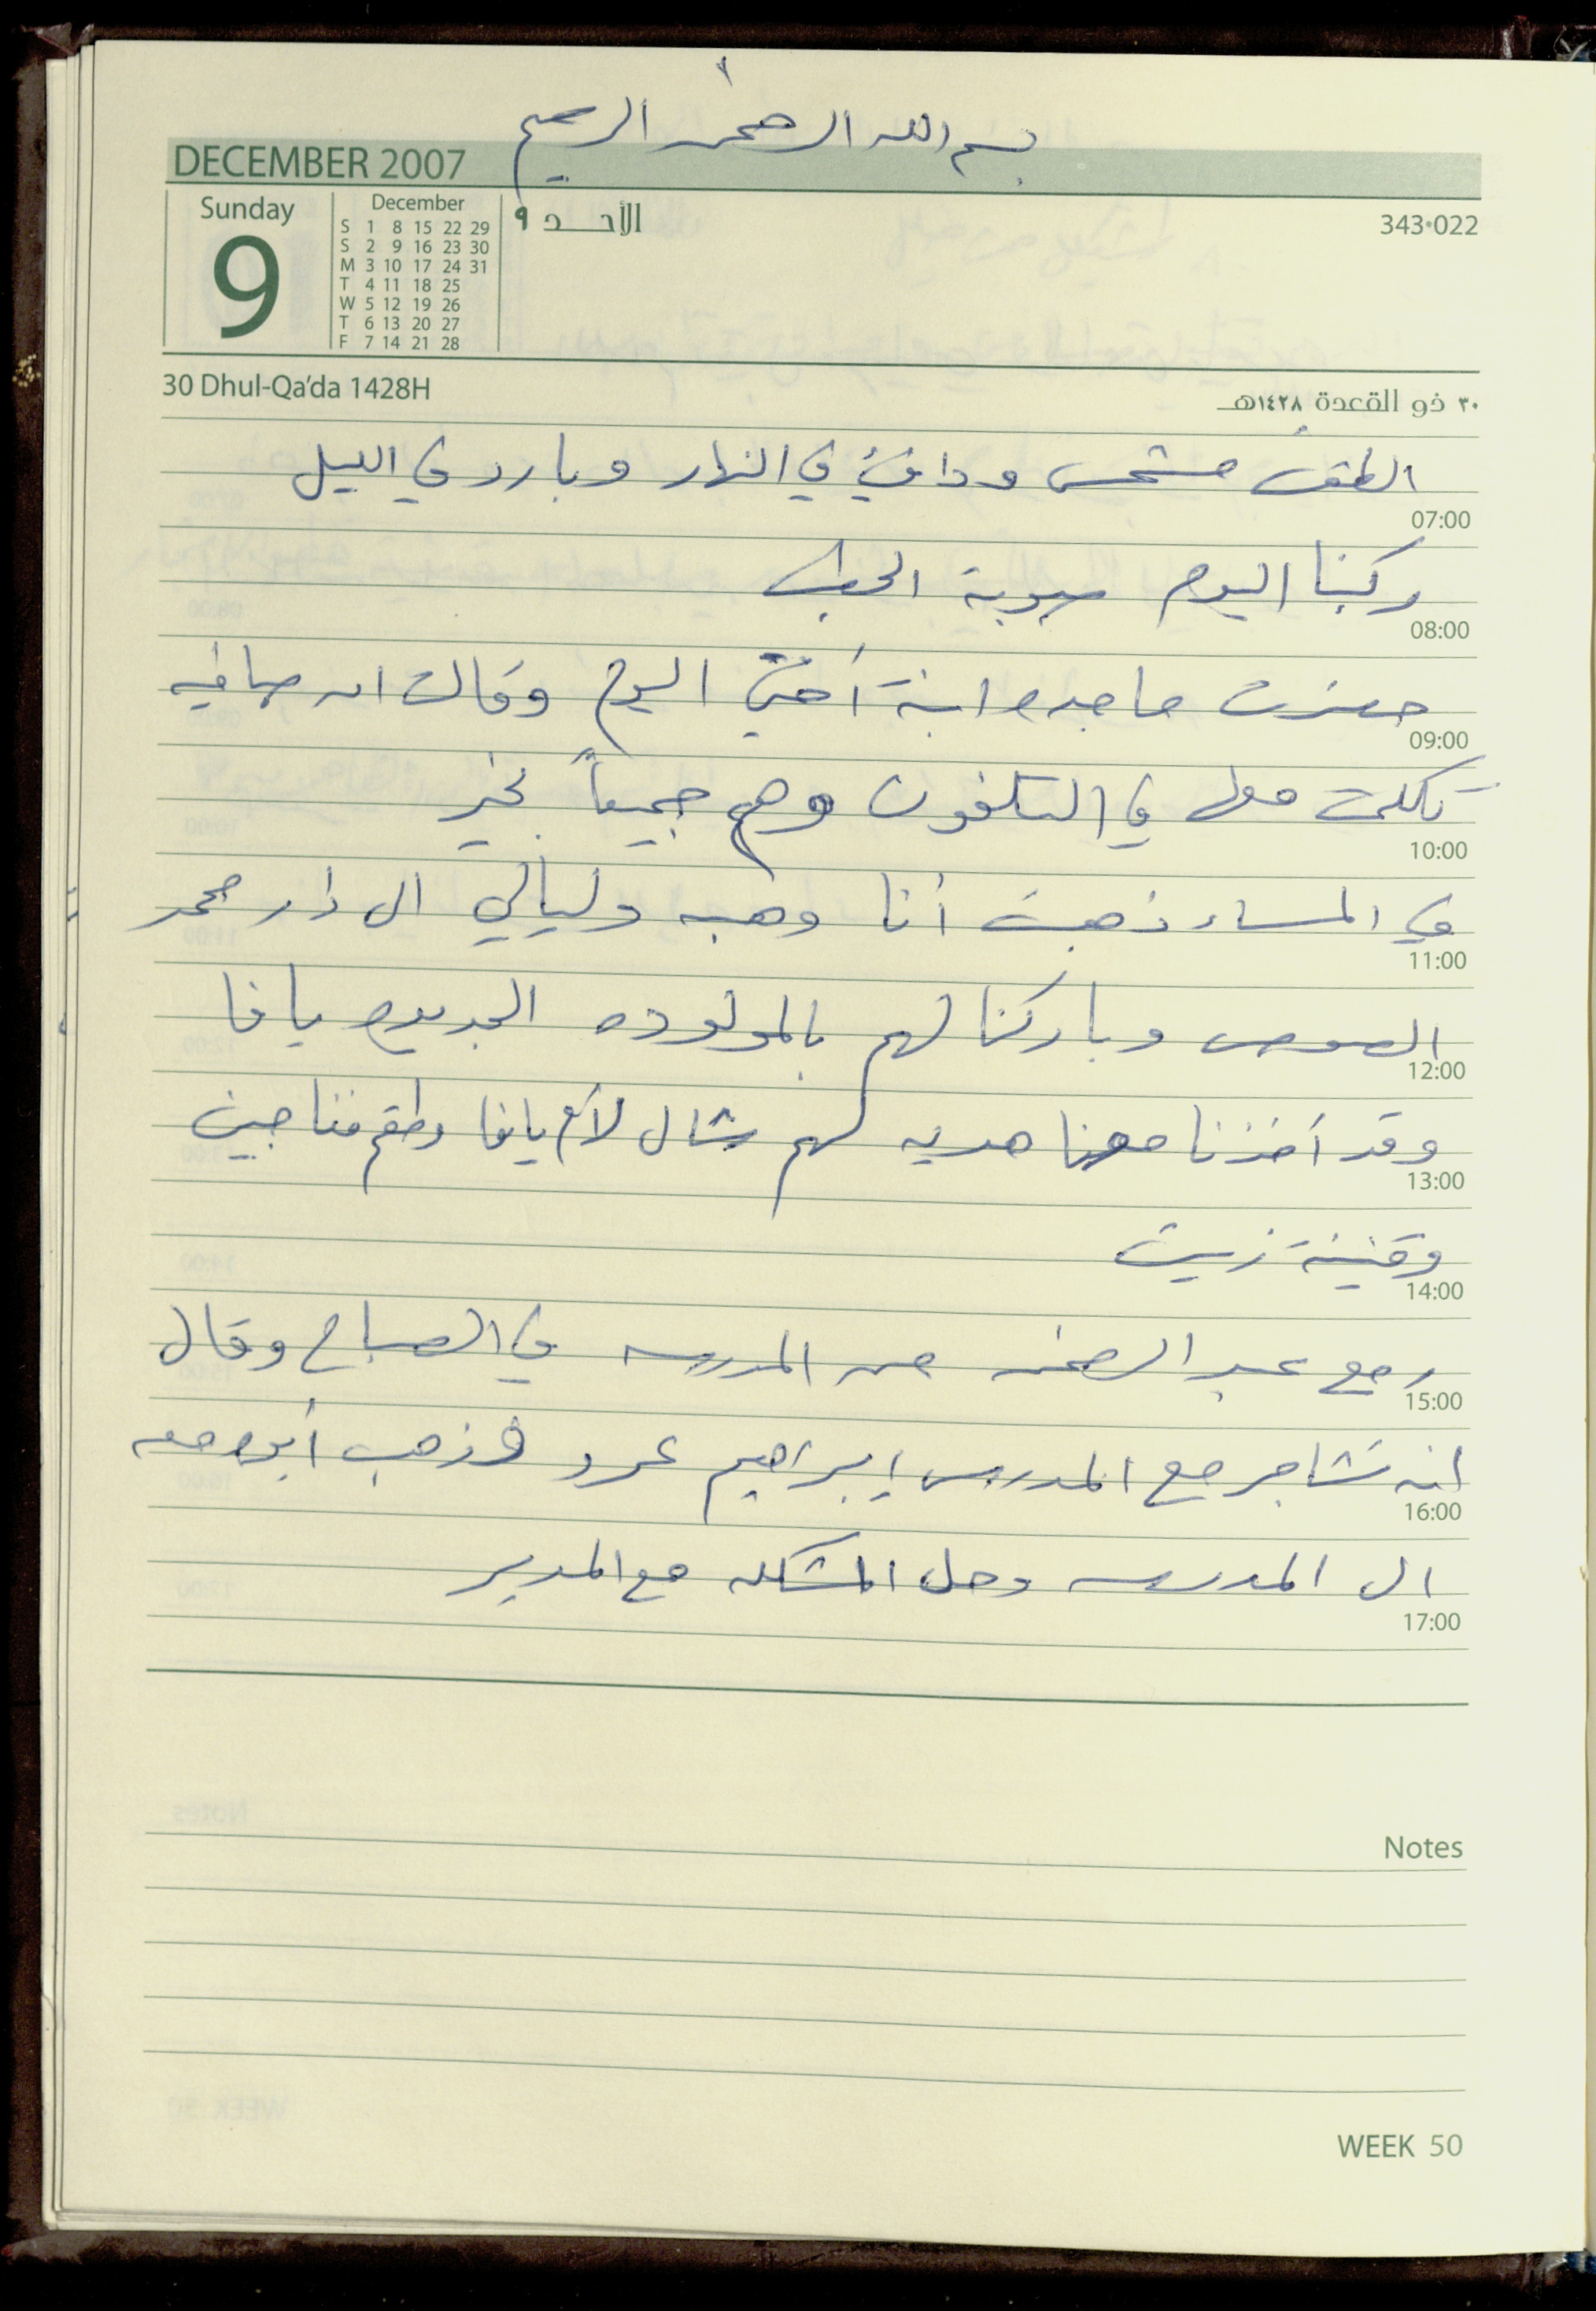 بسم الله الرحمن الرحيم
DECEMBER 2007
Sunday
9
December
S 1 8 15 22 29
S 2 9 16 23 30
M 3 10 17 24 31
T 4 11 18 25
W 5 12 19 26
T 6 13 20 27
F 7 14 21 28
الأحد ٩
343•022
30 Dhul-Qa'da 1428H
٣٠ ذو القعدة ١٤٢٨هـ
الطقس مشمس ودافئ في النهار وبارد في الليل
07:00
ركبنا اليوم صوبة الحطب
08:00
حضرت ماجده ابنة أختي اليوم وقالت ان
08:00
09:00
تكلمت معها في التلفون وهم جميعاً بخير
10:00
في المساء ذهبت أنا وهبه وليالي الى دار محمد
11:00
الصوص وباركنا لهم بالمولوده الجديده يافا
12:00
وقد أخذنا معنا هديه لهم شال لأم يافا وطقم فناجين
13:00
وقنينة زيت
14:00
رجع عبد الرحمن من المدرسه في الصباح وقال
15:00
انه تشاجر مع المدرس إبراهيم عمرو فذهب أبوه معه
16:00
الى المدرسه وحل المشكله مع المدير
17:00
Notes
WEEK 50